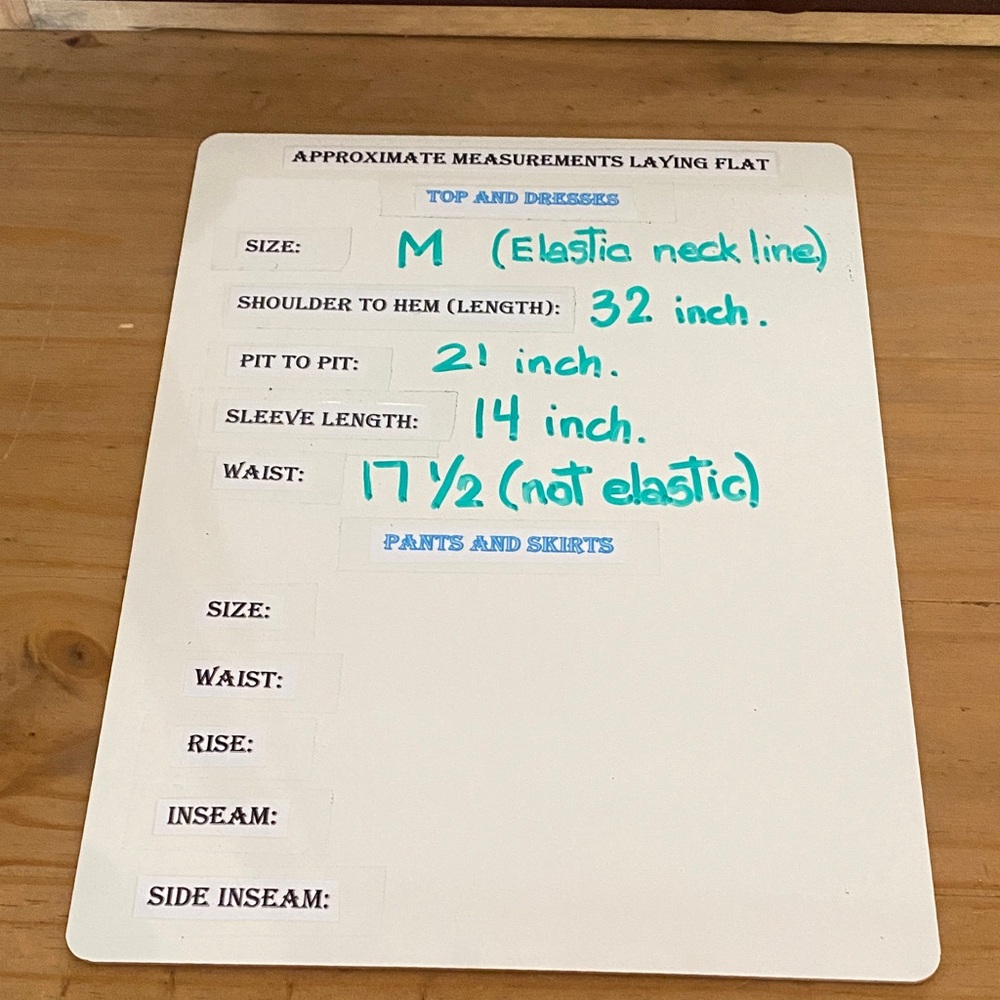 APPROXIMATE MEASUREMENTS LAYING FLAT
TOP AND DRESSES
SIZE: M (Elastic neck line)
SHOULDER TO HEM (LENGTH): 32 inch.
PIT TO PIT: 21 inch.
SLEEVE LENGTH: 14 inch.
WAIST: 17 1/2 (not elastic)
PANTS AND SKIRTS
SIZE:
WAIST:
RISE:
INSEAM:
SIDE INSEAM: